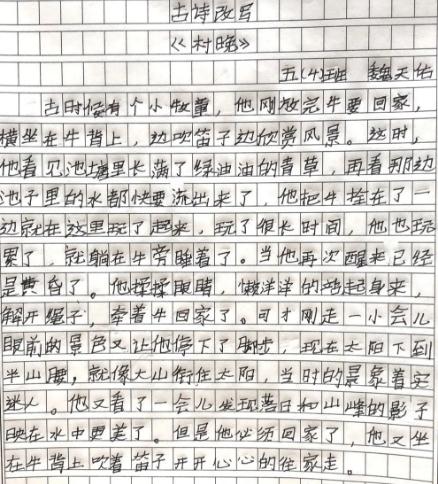 古诗改写
《村晚》
五(4)班 魏天佑
古时候有个小牧童，他刚放完牛要回家，
横坐在牛背上，边吹笛子边欣赏风景。这时，
他看见池塘里长满了绿油油的青草，再看那边
池子里的水都快要流出来了，他把牛拴在了一
边就在这里玩了起来，玩了很长时间，他也玩
累了，就躺在牛旁睡着了。当他再次醒来已经
是黄昏了。他揉揉眼睛，懒洋洋的站起身来，
解开绳子，牵着牛回家了。可才刚走一小会儿
眼前的景色又让他停下了脚步，现在太阳下到
半山腰，就像大山衔住太阳，当时的景象着实
迷人。他又看了一会儿发现落日和山峰的影子
映在水中更美了。但是他必须回家了，他又坐
在牛背上吹着笛子开开心心的往家走。